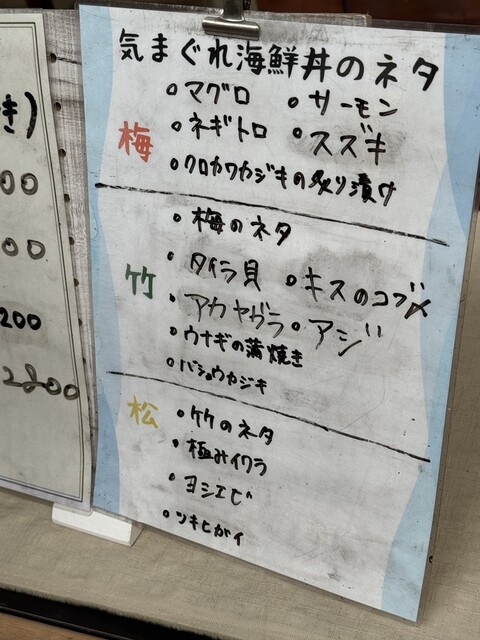 き)
00
00
200
2200
気まぐれ海鮮丼のネタ
梅
・マグロ ・サーモン
・ネギトロ ・スズキ
・クロカワカジキの炙り漬け
竹
・梅のネタ
・タイラ貝 ・キスのコブ〆
・アカヤガラ・アジ
・ウナギの蒲焼き
・バショウカジキ
松
・竹のネタ
・極みイクラ
・ヨシエビ
・ツキヒガイ